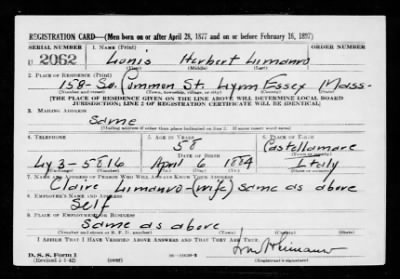 REGISTRATION CARD—(Men born on or after April 28, 1877 and on or before February 16, 1897)
SERIAL NUMBER 1. NAME (Print) ORDER NUMBER
U 2062 Louis Herbert Limauro
(First) (Middle) (Last)
2. PLACE OF RESIDENCE (Print)
158 So. Common St. Lynn Essex Mass-
(Number and street) (Town, township, village, or city) (County) (State)
[THE PLACE OF RESIDENCE GIVEN ON THE LINE ABOVE WILL DETERMINE LOCAL BOARD
JURISDICTION; LINE 2 OF REGISTRATION CERTIFICATE WILL BE IDENTICAL]
3. MAILING ADDRESS
Same
[Mailing address if other than place indicated on line 2. If same insert word same]
4. TELEPHONE 5. AGE IN YEARS 6. PLACE OF BIRTH
58 Castellamare
DATE OF BIRTH (Town or county)
Ly 3-5816 April 6 1884 Italy
(Exchange) (Number) (Mo.) (Day) (Yr.) (State or country)
7. NAME AND ADDRESS OF PERSON WHO WILL ALWAYS KNOW YOUR ADDRESS
Claire Limauro-(wife) same as above
8. EMPLOYER'S NAME AND ADDRESS
Self
9. PLACE OF EMPLOYMENT OR BUSINESS
Same as above
(Number and street or R. F. D. number) (Town) (County) (State)
I AFFIRM THAT I HAVE VERIFIED ABOVE ANSWERS AND THAT THEY ARE TRUE.
D. S. S. Form 1
(Revised 4-1-42)
(Registrant's signature)